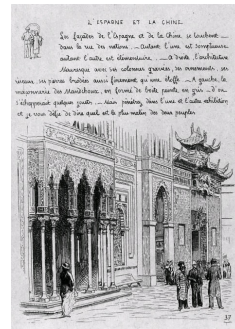 L'ESPAGNE ET LA CHINE.
Les façades de l'Espagne et de la Chine se touchent
dans la rue des nations. — Autant l'une est somptueuse
autant l'autre est élémentaire. — A droite l'architecture
Mauresque avec ses colonnes gravées, ses ornements, ses
vitraux, ses pierres brodées aussi finement qu'une étoffe. — A gauche la
maçonnerie des Mandchoux, en forme de boîte peinte, en gris, d'où
s'échappent quelques — Mais pénétrez dans l'une et l'autre exhibition
et je vous défie de dire quel est le plus malin des deux peuples
37